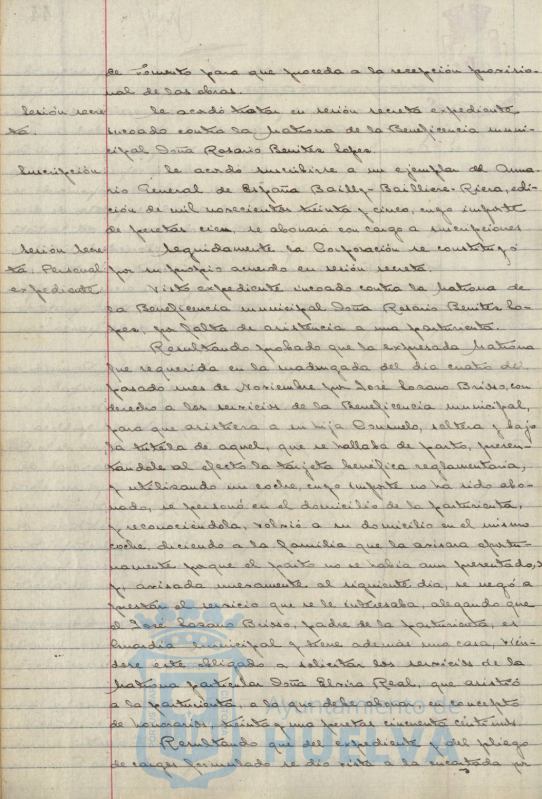 de Fomento para que proceda a la recepción provisio-
nal de las obras.
Sesión secre- Se acordó tratar en sesión secreta expediente
ta. incoado contra la Matrona de la Beneficencia muni-
cipal Doña Rosario Benitez Lopez.
Suscripción Se acordó suscribirse a un ejemplar del Anua-
rio General de España Bailly-Bailliere-Riera, edi-
ción de mil novecientos treinta y cinco, cuyo importe
de pesetas cien, se abonará con cargo a suscripciones
Sesión Secre- Seguidamente la Corporación se constituyó
ta. Personal por su propio acuerdo en sesión secreta.
expediente Visto expediente incoado contra la Matrona de
la Beneficencia municipal Doña Rosario Benitez Lo-
pez, por falta de asistencia a una parturienta.
Resultando probado que la expresada Matrona
fue requerida en la madrugada del día cuatro del
pasado mes de Noviembre por José Lozano Brisso, con
derecho a los servicios de la Beneficencia municipal,
para que asistiera a su hija Consuelo, soltera y bajo
la tutela de aquel, que se hallaba de parto, presen-
tandole al efecto la tarjeta benefica reglamentaria,
y utilizando un coche, cuyo importe no ha sido abo-
nado, se personó en el domicilio de la parturienta,
y reconociendola, volvió a su domicilio en el mismo
coche diciendo a la familia que la avisara oportu-
namente porque el parto no se habia aun presentado,
y, avisada nuevamente al siguiente dia, se negó a
prestar el servicio que se le interesaba, alegando que
el José Lozano Brisso, padre de la parturienta, es
Guardia municipal y tiene además una casa, vien-
dose este obligado a solicitar los servicios de la
Matrona particular Doña Elvira Real, que asistió
a la parturienta, a la que debe abonar en concepto
de honorarios, treinta y una pesetas cincuenta céntimos.
Resultando que del expediente y del pliego
de cargos formulado se dio vista a la encartada por
Ayuntamiento de
HUELVA